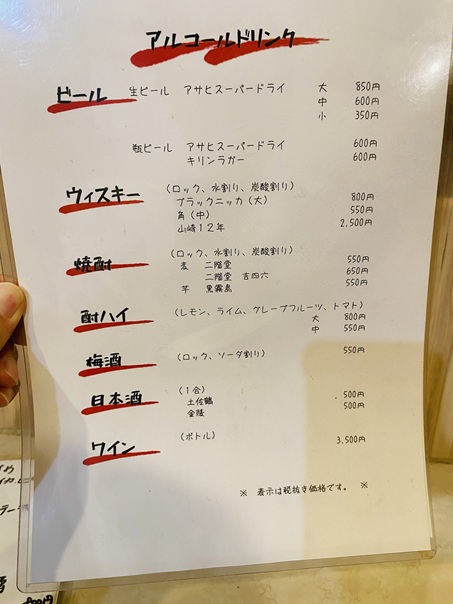 アルコールドリンク
ビール 生ビール アサヒスーパードライ 大 850円
中 600円
小 350円
瓶ビール アサヒスーパードライ 600円
キリンラガー 600円
ウィスキー (ロック、水割り、炭酸割り)
ブラックニッカ(大) 800円
角(中) 550円
山崎12年 2,500円
焼酎 (ロック、水割り、炭酸割り)
麦 二階堂 550円
二階堂 吉四六 650円
芋 黒霧島 550円
酎ハイ (レモン、ライム、グレープフルーツ、トマト)
大 800円
中 550円
梅酒 (ロック、ソーダ割り) 550円
日本酒 (1合)
土佐鶴 500円
金陵 500円
ワイン (ボトル) 3,500円
※ 表示は税抜き価格です。 ※